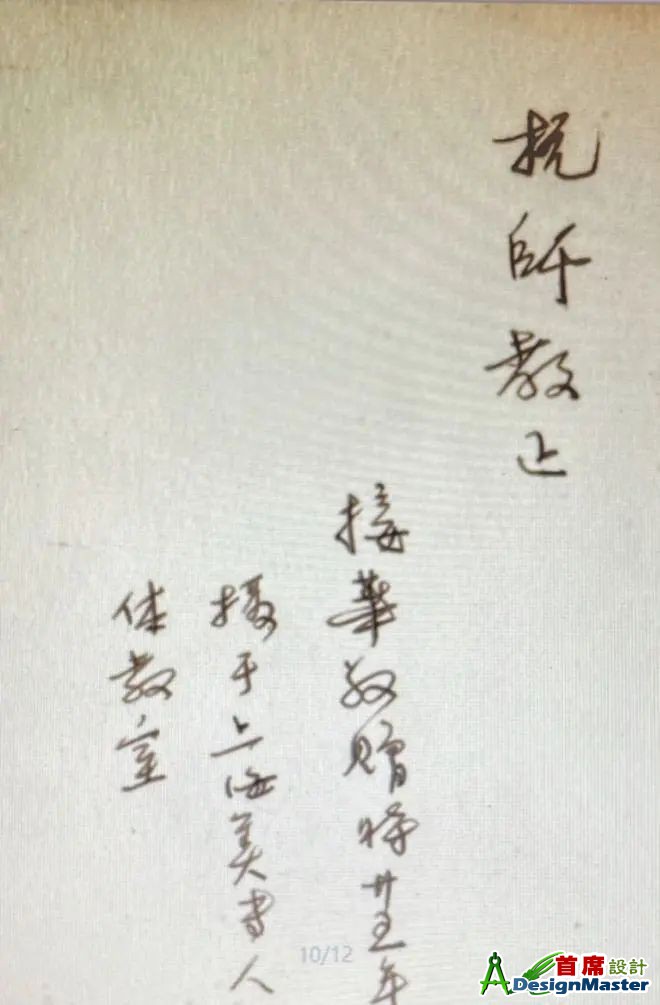 抗师教正
接華敬贈時廿五年
摄于上海美专人
体教室
10/12
首席設計
DesignMaster